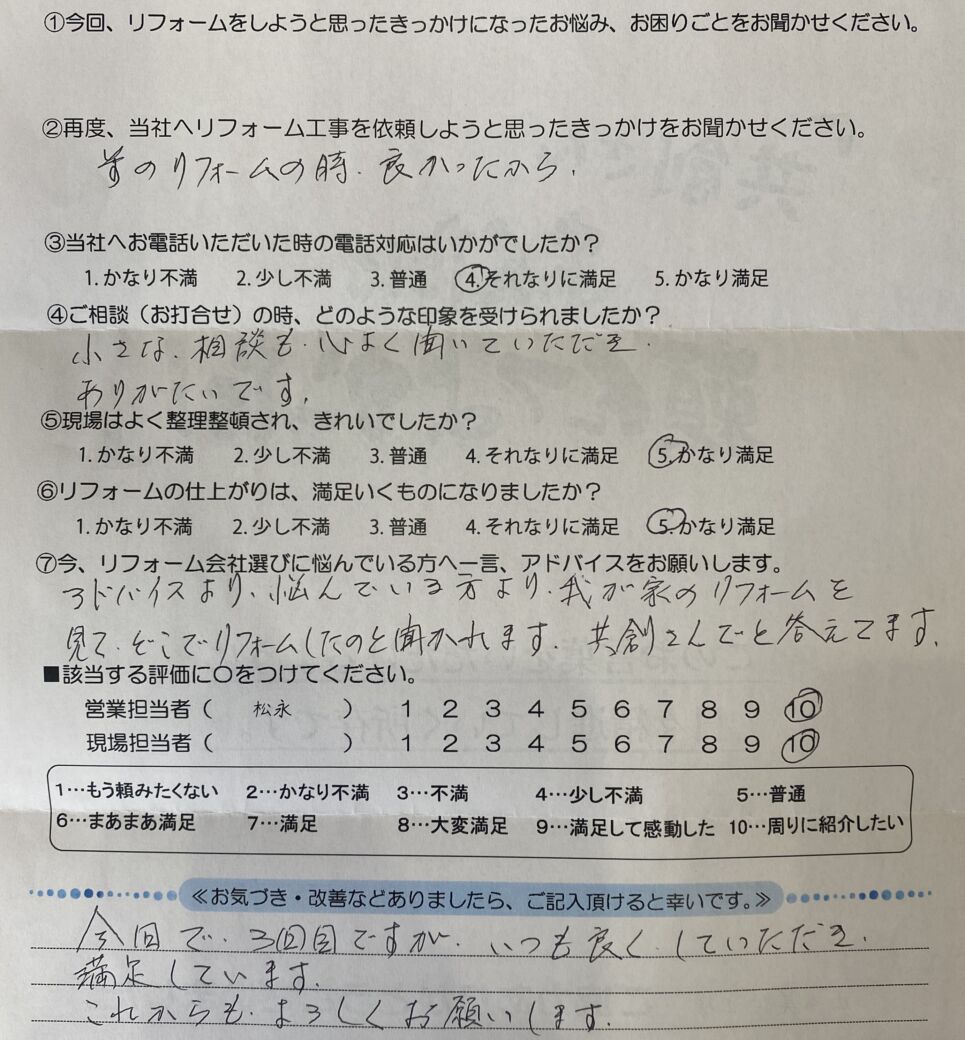 ①今回、リフォームをしようと思ったきっかけになったお悩み、お困りごとをお聞かせください。
②再度、当社へリフォーム工事を依頼しようと思ったきっかけをお聞かせください。
前のリフォームの時、良かったから、
③当社へお電話いただいた時の電話対応はいかがでしたか？
1.かなり不満 2.少し不満 3.普通 4.それなりに満足 5.かなり満足
④ご相談（お打合せ）の時、どのような印象を受けられましたか？
小さな、相談も、心よく聞いていただき、
ありがたいです。
⑤現場はよく整理整頓され、きれいでしたか？
1.かなり不満 2.少し不満 3.普通 4.それなりに満足 5.かなり満足
⑥リフォームの仕上がりは、満足いくものになりましたか？
1.かなり不満 2.少し不満 3.普通 4.それなりに満足 5.かなり満足
⑦今、リフォーム会社選びに悩んでいる方へ一言、アドバイスをお願いします。
アドバイスより、悩んでいる方より、我が家のリフォームを
見て、どこでリフォームしたのと聞かれます。共創さんでと答えてます。
■該当する評価に○をつけてください。
営業担当者（ 松永 ） 1 2 3 4 5 6 7 8 9 10
現場担当者（ ） 1 2 3 4 5 6 7 8 9 10
1…もう頼みたくない 2…かなり不満 3…不満 4…少し不満 5…普通
6…まあまあ満足 7…満足 8…大変満足 9…満足して感動した 10…周りに紹介したい
≪お気づき・改善などありましたら、ご記入頂けると幸いです。≫
今回で、3回目ですが、いつも良く、していただき、
満足しています。
これからも、よろしくお願いします。